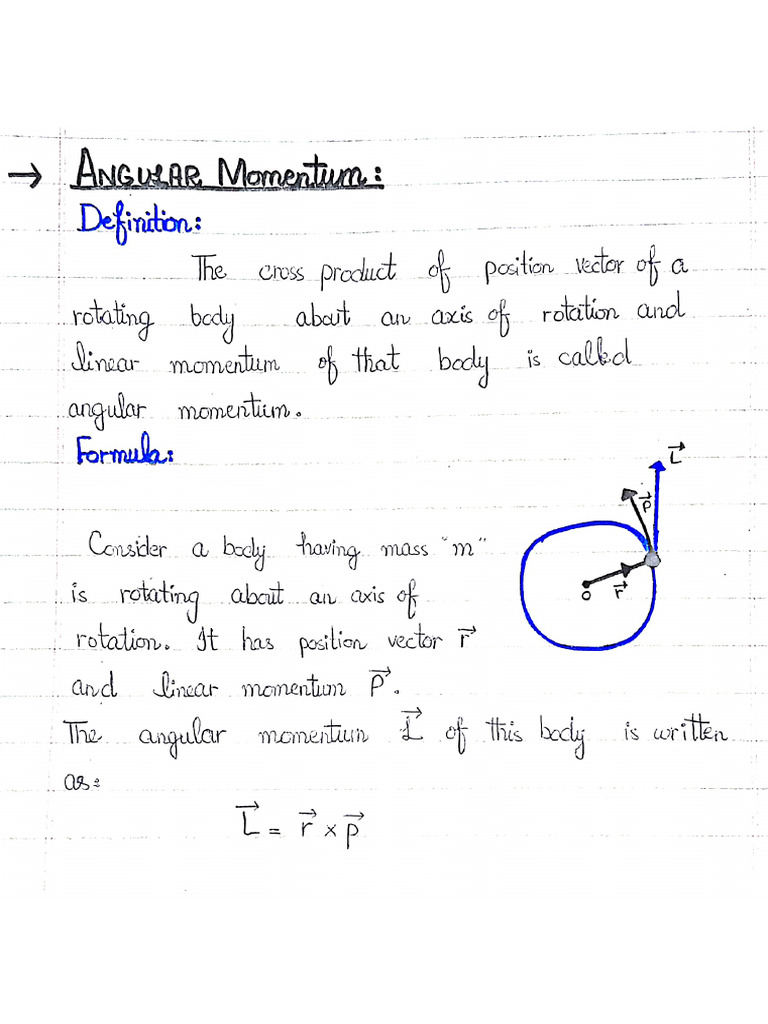 → ANGULAR Momentum:
Definition:
The cross product of position vector of a
rotating body about an axis of rotation and
linear momentum of that body is called
angular momentum.
Formula:
L⃗
P⃗
O
r⃗
Consider a body having mass "m"
is rotating about an axis of
rotation. It has position vector r⃗
and linear momentum P⃗.
The angular momentum L⃗ of this body is written
as:
L⃗ = r⃗ × p⃗